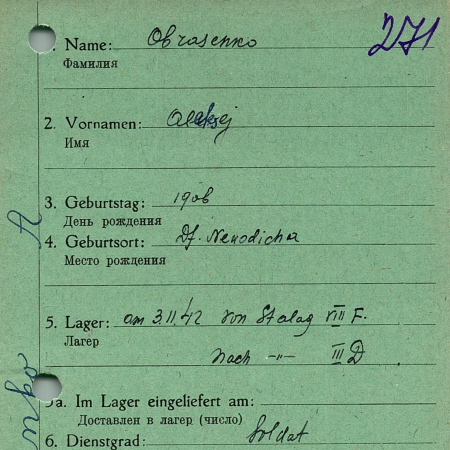 271
Name: Obrasenko
Фамилия
2. Vornamen: Aleksej
Имя
3. Geburtstag: 1906
День рождения
4. Geburtsort: Df.
Место рождения
5. Lager: am 3.11.42 von Stalag VIII F.
Лагер
nach -"- III D
5a. Im Lager eingeliefert am:
Доставлен в лагер (число)
6. Dienstgrad: Soldat